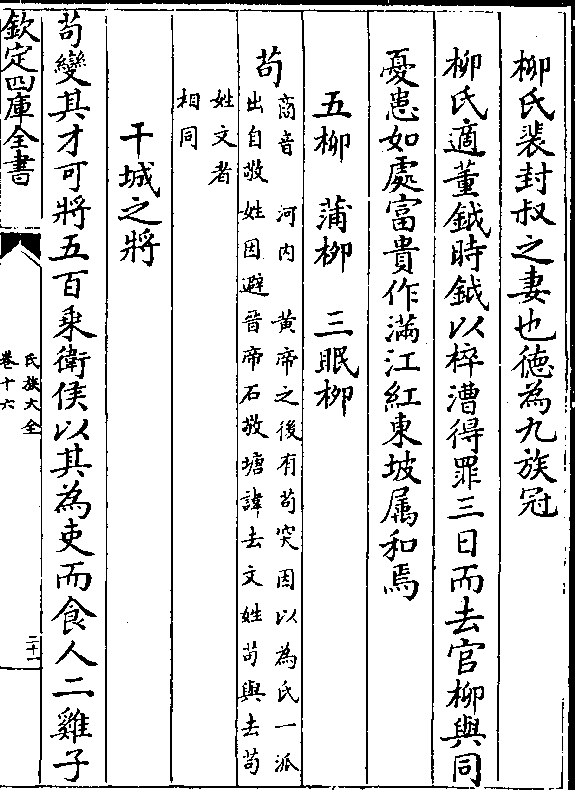 柳氏裴封叔之妻也德為九族冠
柳氏適董鉞時鉞以梓漕得罪三日而去官柳與同
憂患如處富貴作滿江紅東坡属和焉
五柳　蒲柳　三眠柳
苟　商音　河内　黄帝之後有苟突因以為氏一派
出自敬姓因避晉帝石敬塘諱去文姓苟與去苟
姓文者
相同
干城之將
苟變其才可將五百乘衛侯以其為吏而食人二雞子
欽定四庫全書
氏族大全
卷十六
二十一